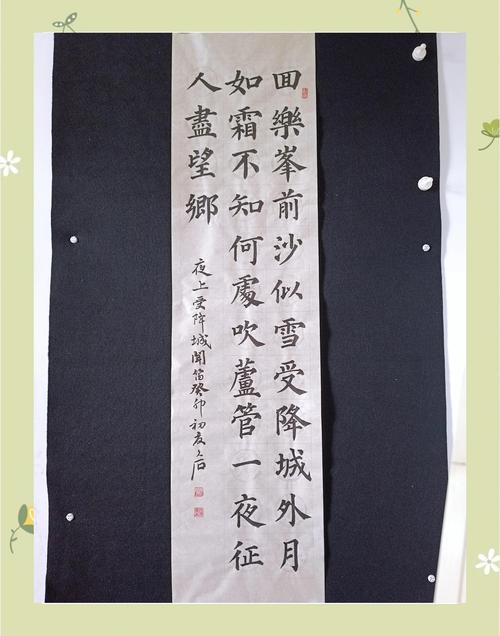 囬樂峯前沙似雪受降城外月
如霜不知何處吹蘆管一夜征
人盡望鄉
夜上受降城聞笛癸卯初夏